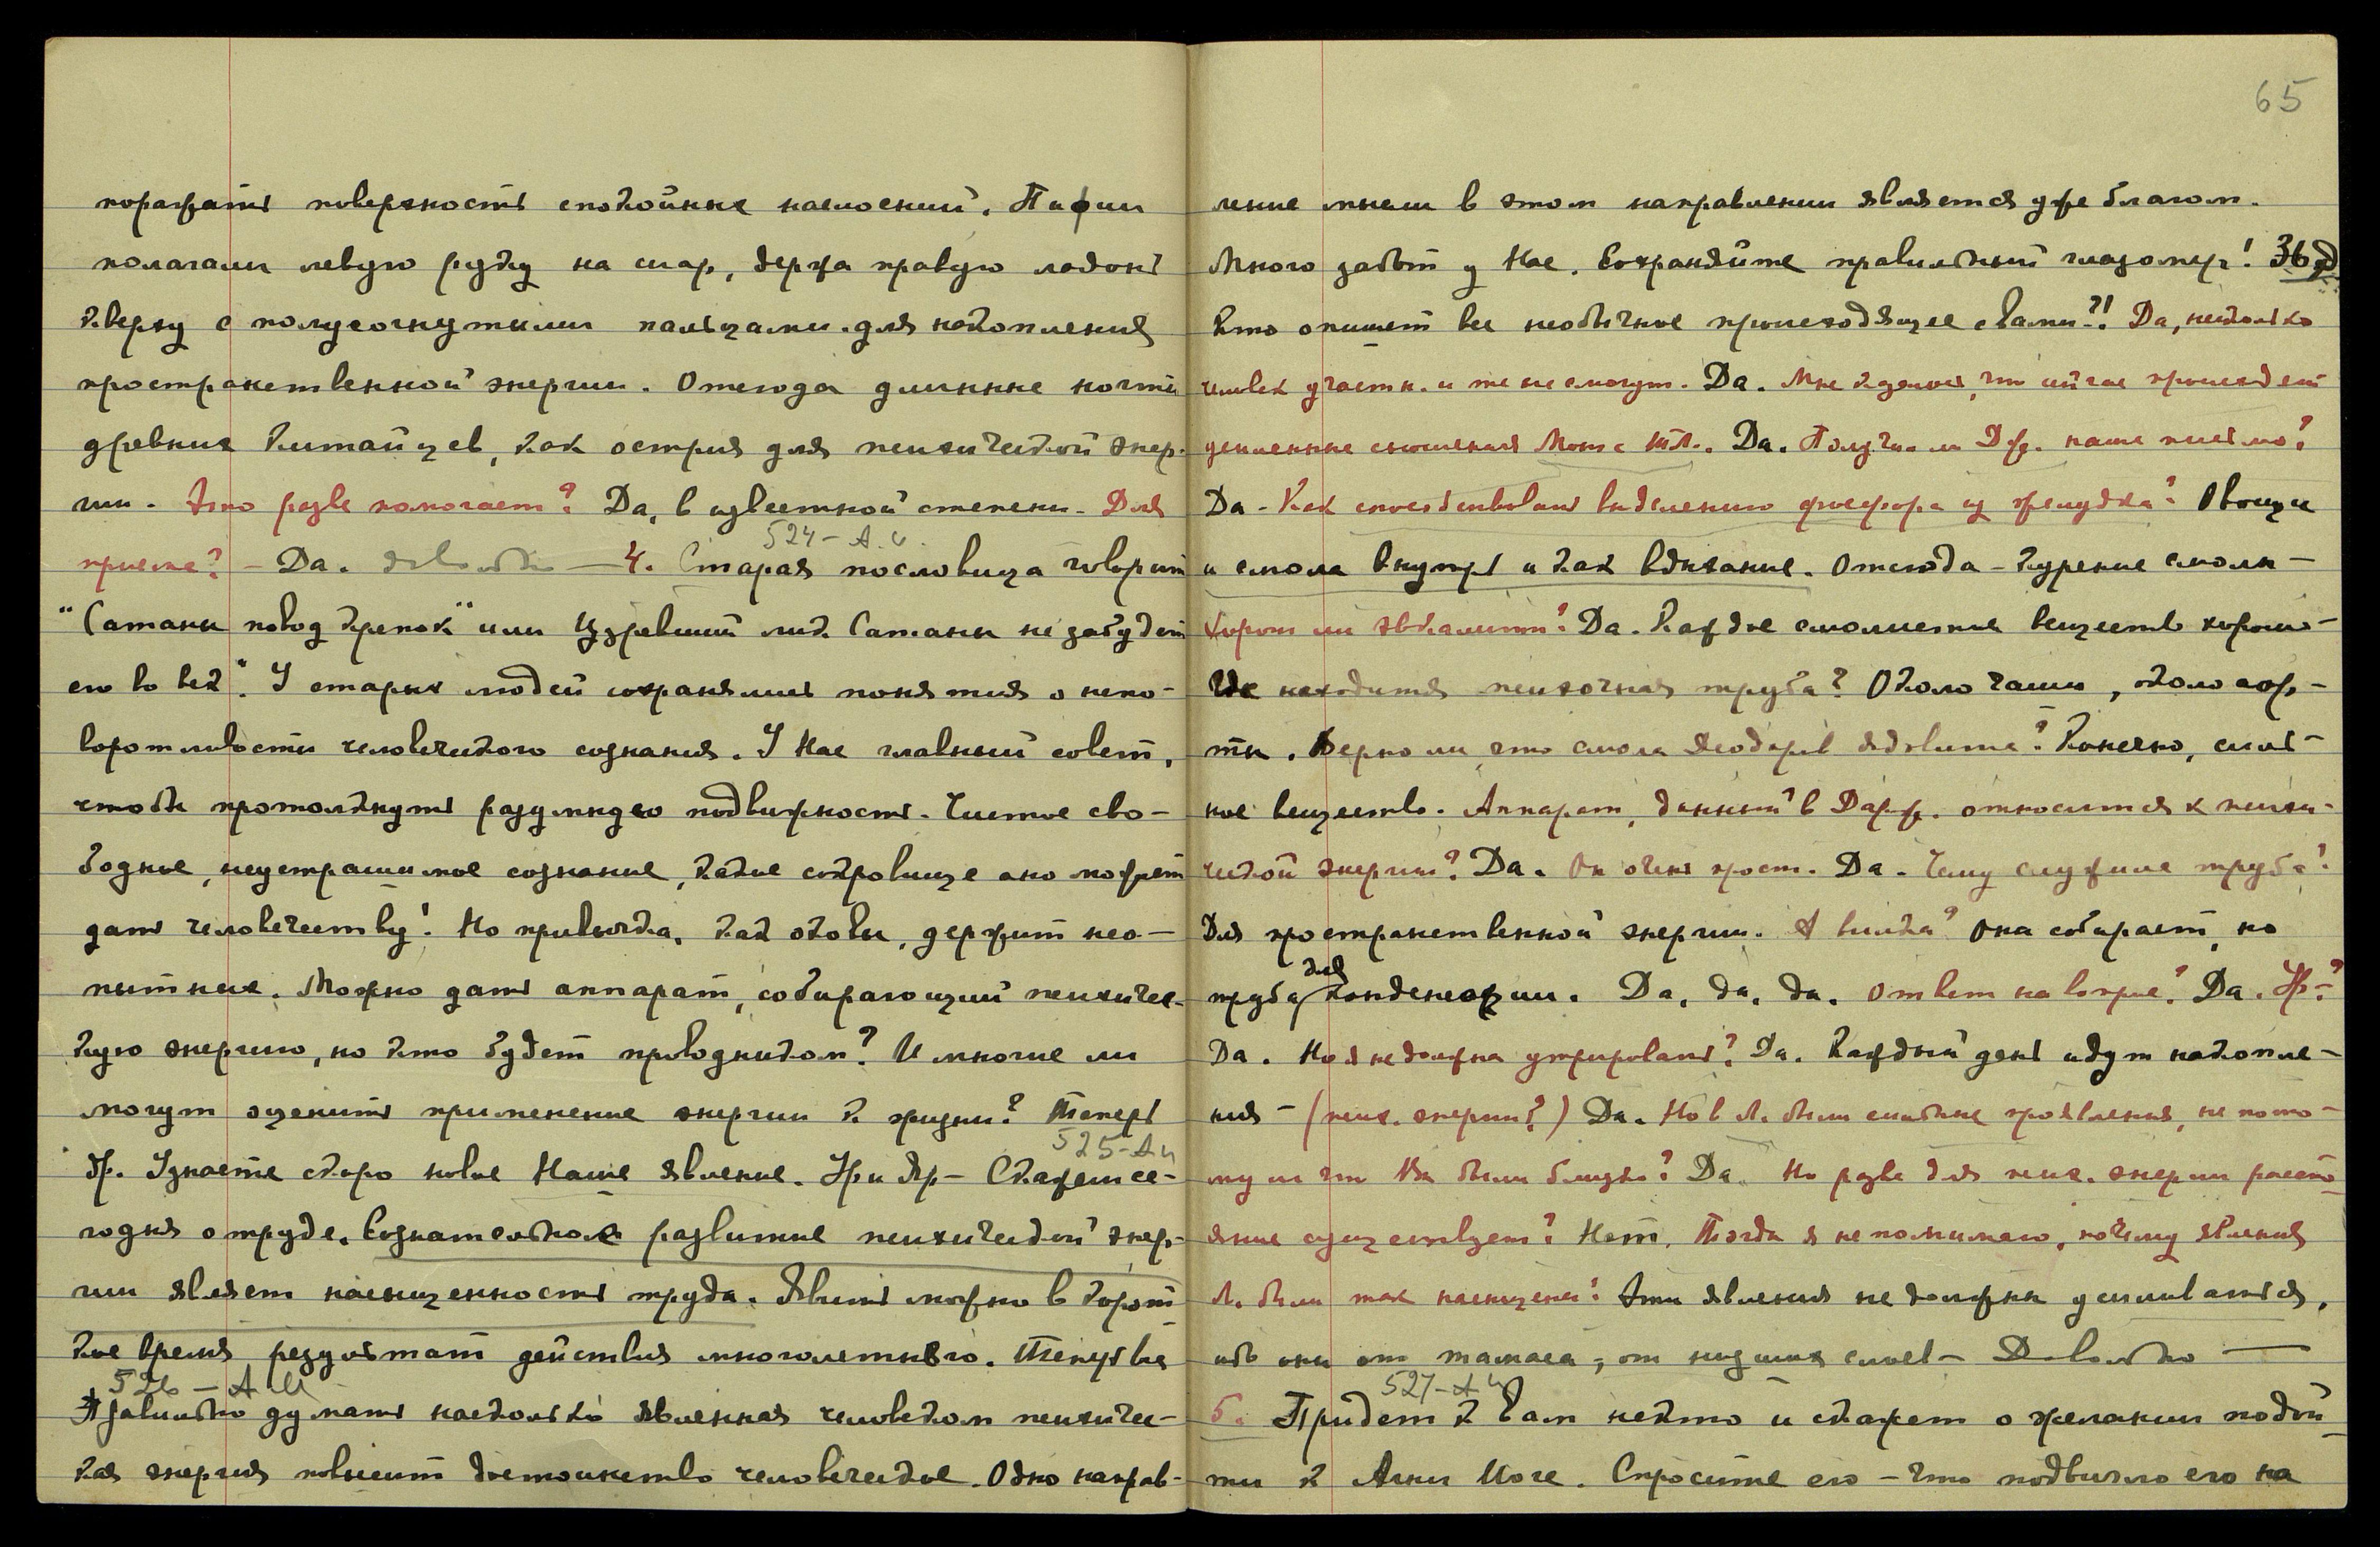 поражать поверхность спокойных наслоений. Пифии
полагали левую руку на шар, держа правую ладонь
кверху с полусогнутыми пальцами для накопления
пространственной энергии. Отсюда длинные ногти
древних Китайцев, как острия для психической энер-
гии. Это разве помогает? Да, в известной степени. Для
524 – А.И.
приема? – Да. Довольно – 4. Старая пословица говорит
"Сатаны повод крепок" или Узревший лик Сатаны не забудет
его во век". У старых людей сохранялись понятия о непо-
воротливости человеческого сознания. У Нас главный совет,
чтобы протолкнуть разумную подвижность. Чистое сво-
бодное, неустрашимое сознание, какое сокровище оно может
дать человечеству! Но привычка, как оковы, держит нео-
пытных. Можно дать аппарат, собирающий психичес-
кую энергию, но кто будет проводником? И многие ли
могут оценить применение энергии к жизни? Теперь
525 – А И
др. Узнаете скоро новое Наше явление. Ур и Яр – Скажем се-
годня о труде. Сознательное развитие психической энер-
гии являет насыщенность труда. Явить можно в корот
кое время результат действия многолетнего.
526 – А И
Правильно думать насколько явленная человеком психичес-
кая энергия повысит достоинство человеческое. Одно направ-
65
ление мысли в этом направлении является уже благом.
Много забот у Нас. Сохраняйте правильный глазомер!
Кто опишет все необычное происходящее с вами?! Да, несколько
человек участн. и те не смогут. Да. Мне кажется, что сейчас происходят
усиленные сношения М. с Да. Получил ли наше письмо?
Да – Как способствовать выделению фосфора из желудка? Овощи
и смола внутрь и как вдыхание. Отсюда – курение смолы –
Хорош ли эвкалипт? Да. Каждое смолистое вещество хорошо –
Где находится психочная труба? Около чаши, около аор-
ты. Верно ли, что смола деодара ядовита? Конечно, силь-
ное вещество. Аппарат, данный в Дардж. относится к психи-
ческой энергии? Да. Он очень прост. Да. Чему служила труба?
Для пространственной энергии. А вилка? Она собирает, но
для
труба конденсации. Да, да, да. Ответ на вопрос? Да. Ур?
Да. Но я не должна утрировать? Да. Каждый день идут накопле-
ния – (псих. энергии?) Да. Но в Л. были сильные проявления, не пото-
му ли что Вы были близко? Да. Но разве для псих. энергии рассто-
яние существует? Нет. Тогда я не понимаю, почему явления
Л. были так насыщены? Эти явления не должны усиливаться,
ибо они от тамаса, от низших слоев – Довольно –
527 – А И
5. Придет к Вам некто и скажет о желании подой-
ти к Агни Йоге. Спросите его – что подвигло его на